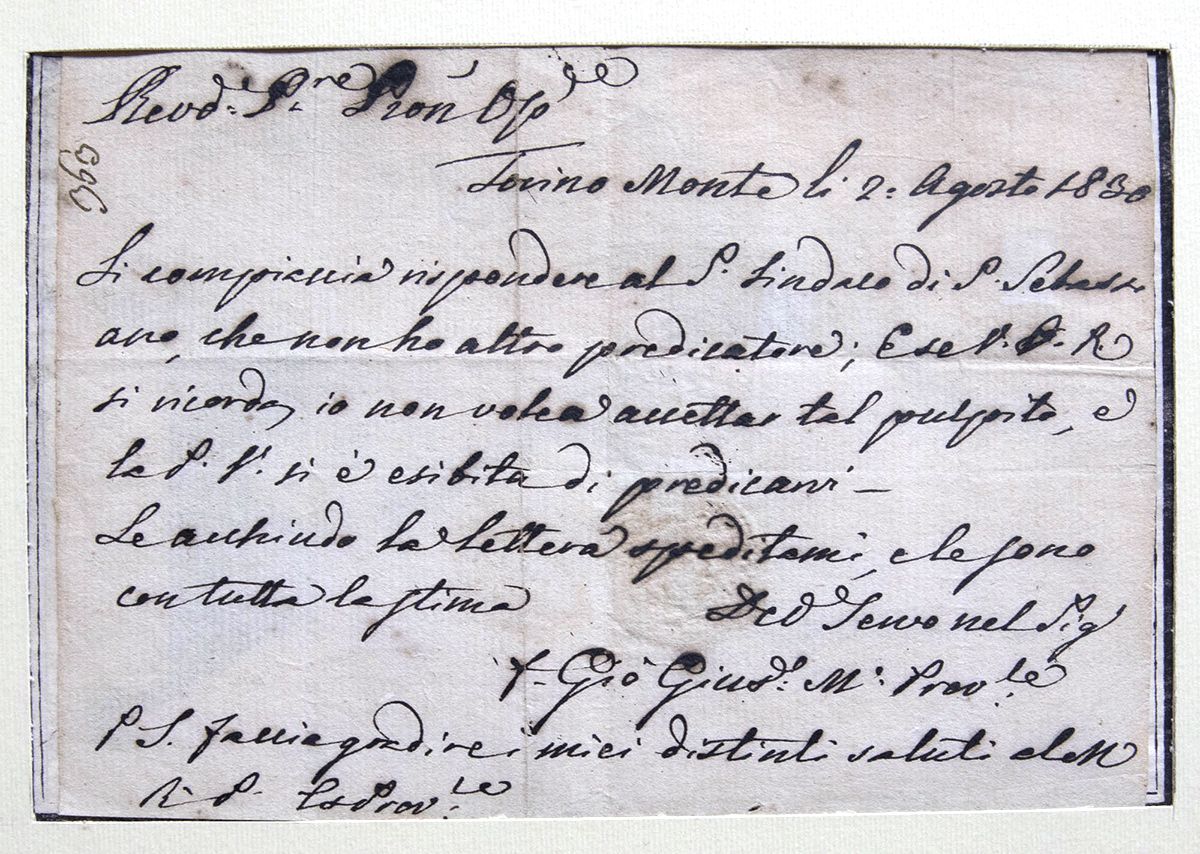 Revd.e P.re Pron Oss.de
Torino Monte li 2: Agosto 1830
Si compiaccia rispondere al S.r Sindaco di S. Sebasti
ano, che non ho altro predicatore; E se V. P. R.
si ricorda, io non volea accettar tal pulpito, e
la P. V. si è esibita di predicarvi —
Le acchiudo la lettera speditami, e le sono
con tutta la stima Dev.o Servo nel Sig.r
f. Gio Gius.e M.a Prov.le
P S. Faccia gradire i miei distinti saluti al M
R. P. Exprov.le